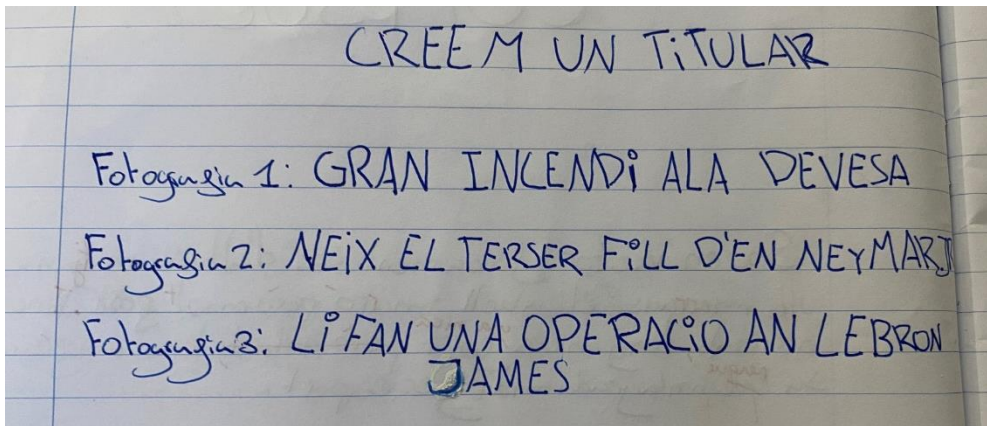 CREEM UN TiTULAR
Fotografia 1: GRAN INCENDi ALA DEVESA
Fotografia 2: NEiX EL TERSER FiLL D'EN NEYMARJ
Fotografia 3: Li FAN UNA OPERACiO AN LEBRON
JAMES